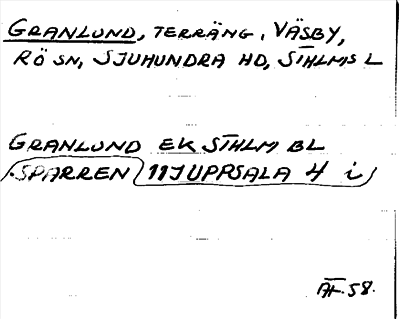 GRANLUND, TERRÄNG, VÄSBY,
RÖ SN, SJUHUNDRA HD, STHLMS L
GRANLUND EK STHLM BL
SPARREN 11J UPPSALA 4 i
ÄF. 58.